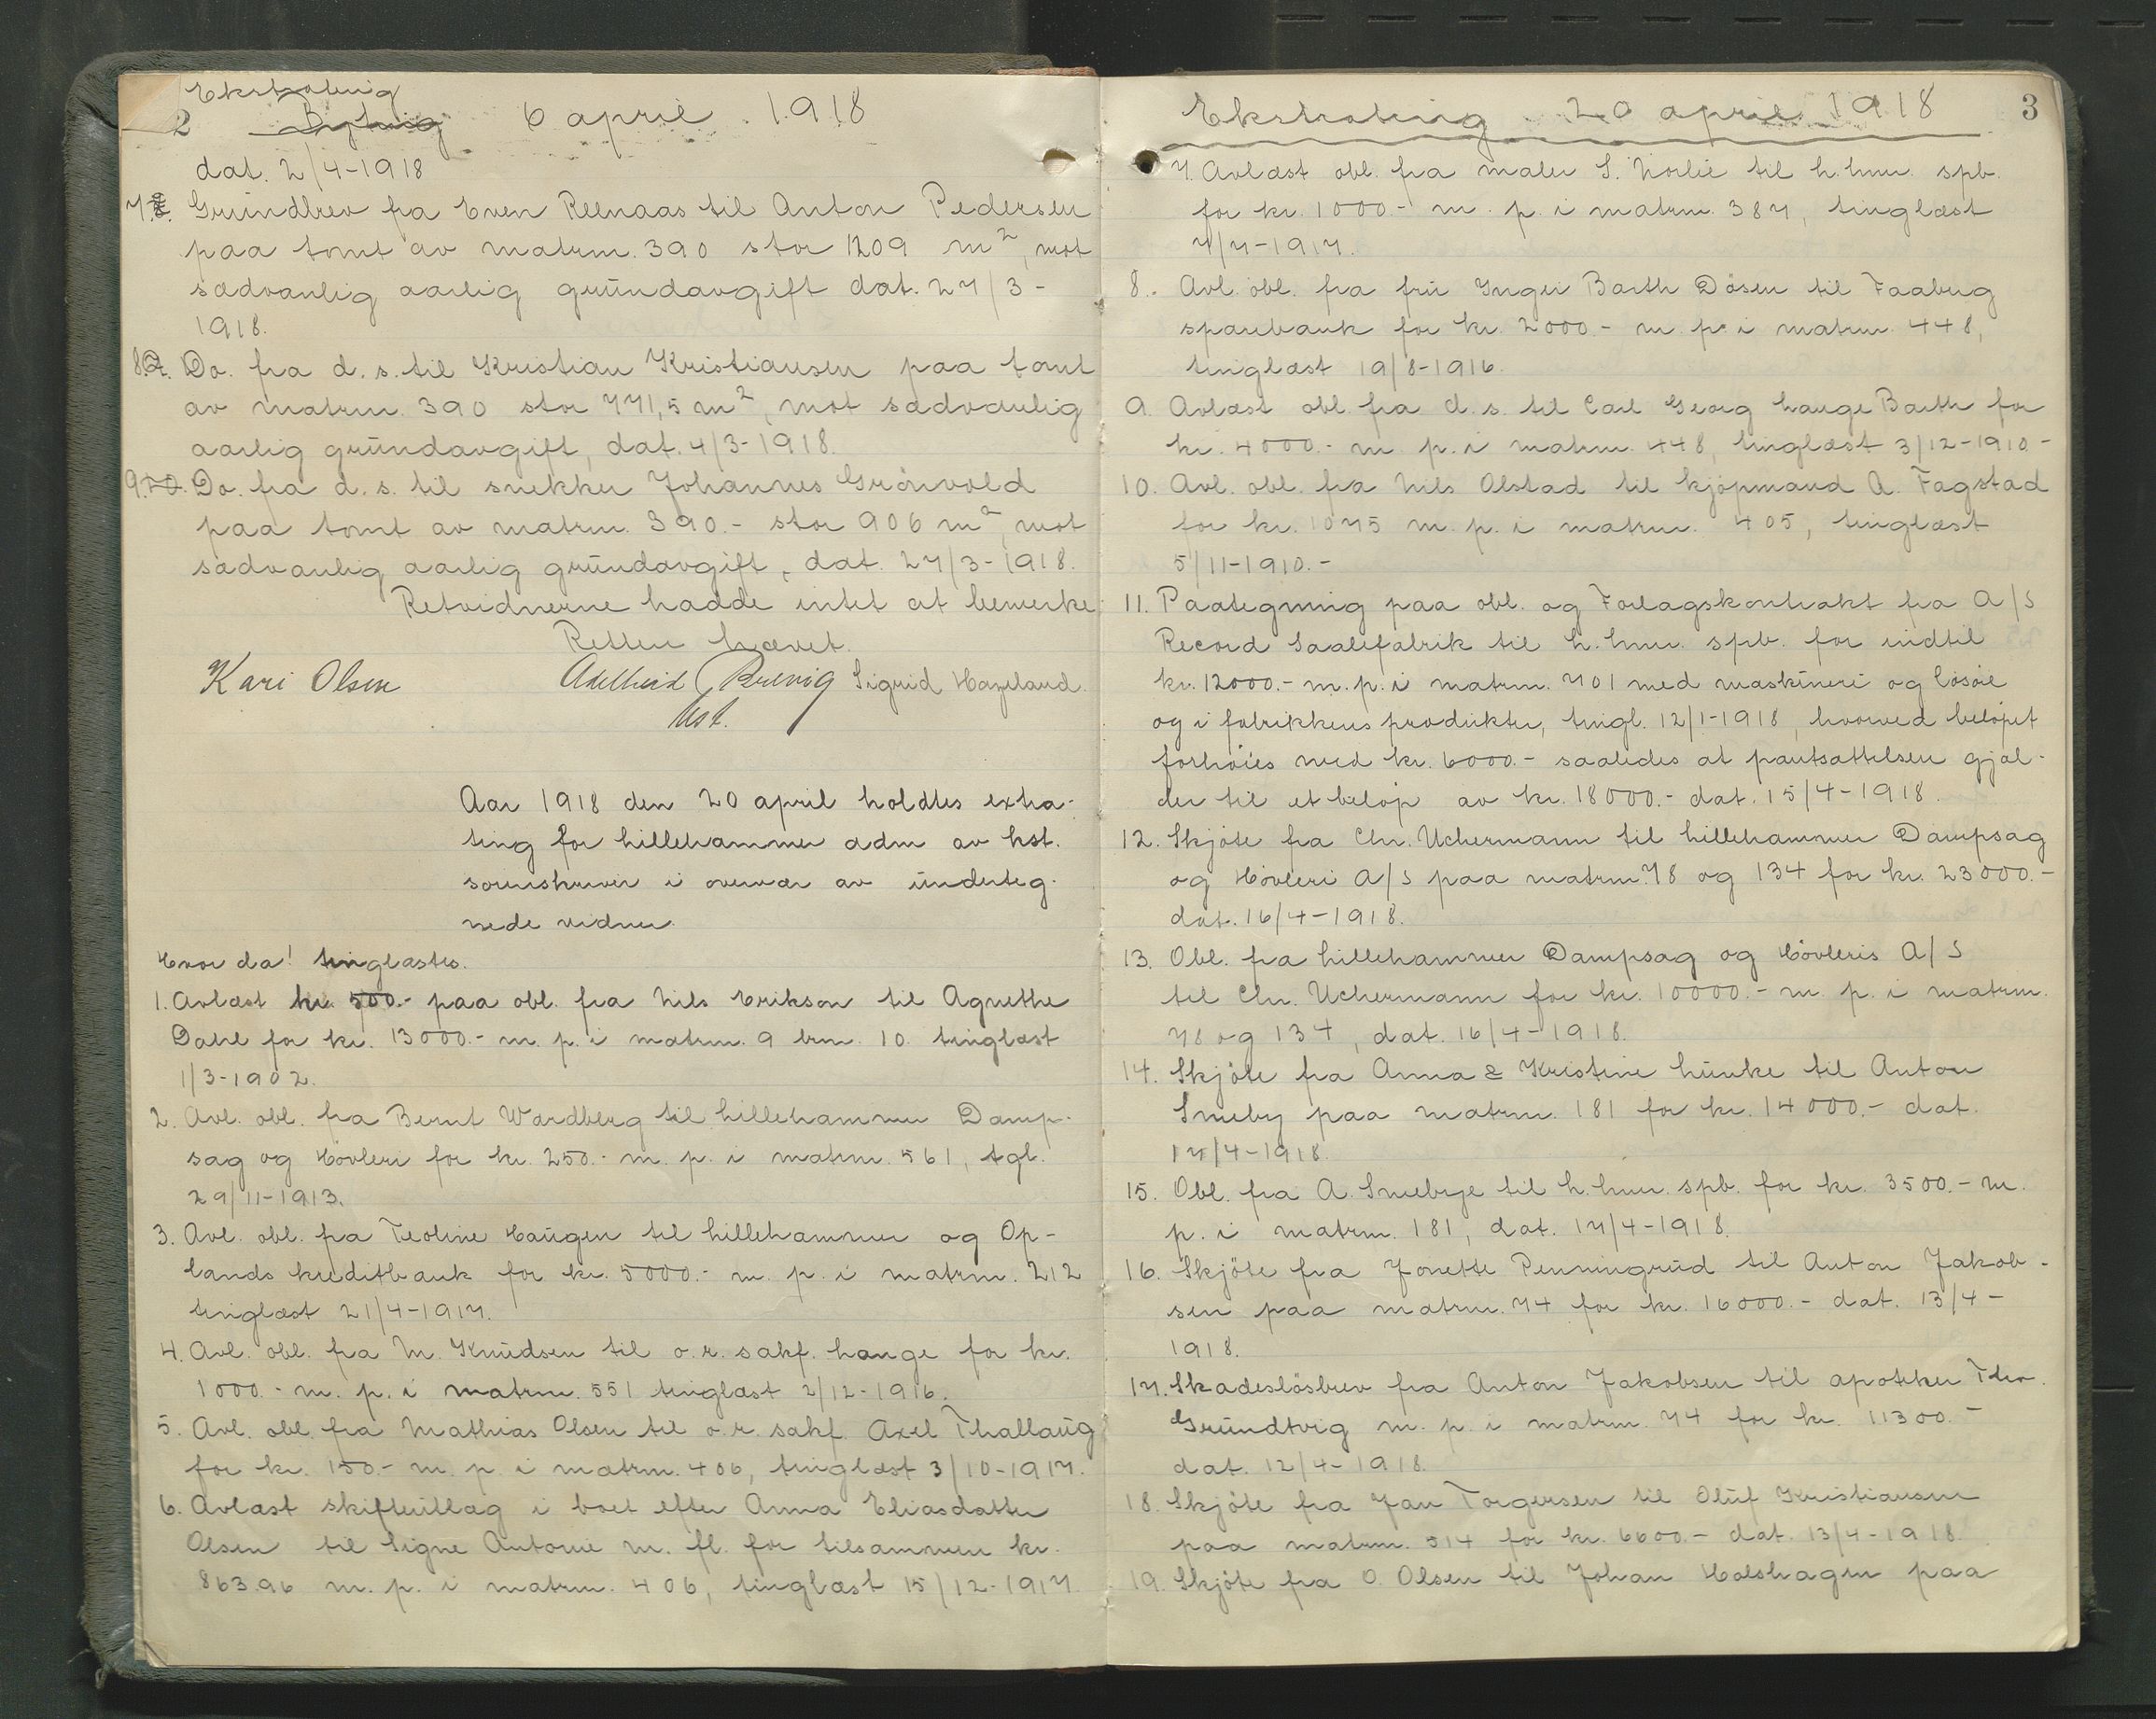 Ekstrating
2 Bything 6 april 1918
dat. 2/4-1918
7. Grundbrev fra Even Reenaas til Anton Pedersen
paa tomt av matrnr. 390 stor 1209 m², mot
sædvanlig aarlig grundavgift dat. 27/3-
1918.
8. Do. fra d. s. til Kristian Kristiansen paa tomt
av matrnr. 390 stor 771,5 m², mot sædvanlig
aarlig grundavgift, dat. 4/3-1918.
9. Do. fra d. s. til snekker Johannes Grönvold
paa tomt av matrnr. 390.- stor 906 m², mot
sædvanlig aarlig grundavgift, dat. 27/3-1918.
Retvidnerne hadde intet at bemerke
Retten hævet.
Kari Olsen Adelheid Brevig Sigrid Hageland.
kst.
Aar 1918 den 20 april holdtes extra-
ting for Lillehammer adm av kst.
sorenskriver i overvær av underteg-
nede vidner.
Hvor da! tinglæstes.
1. Avlæst kr. 500.- paa obl. fra Nils Erikson til Agnethe
Dahl for kr. 13000.- m. p. i matrnr. 9 brn. 10. tinglæst
1/3-1902.
2. Avl. obl. fra Bernt Wardberg til Lillehammer Damp-
sag og Hövleri for kr. 250.- m. p. i matrnr. 561, tgl.
29/11-1913.
3. Avl. obl. fra Teoline Haugen til Lillehammer og Op-
lands kreditbank for kr. 5000.- m. p. i matrnr. 212
tinglæst 21/4-1917.
4. Avl. obl. fra M. Knudsen til o.r. sakf. Lange for kr.
1000.- m. p. i matrnr. 551 tinglæst 2/12-1916.
5. Avl. obl. fra Mathias Olsen til o.r. sakf. Axel Thallaug
for kr. 150.- m. p. i matrnr. 406, tinglæst 3/10-1917.
6. Avlæst skifteutlæg i boet efter Anna Eliasdatter
Olsen til Signe Antonie m. fl. for tilsammen kr.
863.96 m. p. i matrnr. 406, tinglæst 15/12-1917.
Ekstrating 20 april 1918 3
7. Avlæst obl. fra maler S. Norlie til L.hmr. spb.
for kr. 1000.- m. p. i matrnr. 387, tinglæst
7/7-1917.
8. Avl. obl. fra fru Inger Barth Dösen til Faaberg
sparebank for kr. 2000.- m. p. i matrnr. 448,
tinglæst 19/8-1916.
9. Avlæst obl. fra d. s. til Carl Georg Lange Barth for
kr. 4000.- m. p. i matrnr. 448, tinglæst 3/12-1910-
10. Avl. obl. fra Nils Olstad til kjöpmand A. Fagstad
for kr. 1075 m. p. i matrnr. 405, tinglæst
5/11-1910.-
11. Paategning paa obl. og Forlagskontrakt fra A/S
Record Saalefabrik til L.hmr. spb. for indtil
kr. 12000.- m. p. i matrnr. 701 med maskineri og lösöre
og i fabrikkens produkter, tingl. 12/1-1918, hvorved belöpet
forhöies med kr. 6000.- saaledes at pantsættelsen gjæl-
der til et belöp av kr. 18000.- dat. 15/4-1918.
12. Skjöte fra Chr. Uchermann til Lillehammer Dampsag
og Hövleri A/S paa matrnr. 78 og 134 for kr. 23000.-
dat. 16/4-1918.
13. Obl. fra Lillehammer Dampsag og Hövleris A/S
til Chr. Uchermann for kr. 10000.- m. p. i matrnr.
78 og 134, dat. 16/4-1918.
14. Skjöte fra Anna & Kristine Lunke til Anton
Smeby paa matrnr. 181 for kr. 14000.- dat.
17/4-1918.
15. Obl. fra A. Smebye til L.hmr. spb. for kr. 3500.- m.
p. i matrnr. 181, dat. 17/4-1918.
16. Skjöte fra Jonette Penningrud til Anton Jakob-
sen paa matrnr. 74 for kr. 16000.- dat. 13/4-
1918.
17. Skadeslösbrev fra Anton Jakobsen til apotheker Thv.
Grundtvig m. p. i matrnr. 74 for kr. 11300.-
dat. 12/4-1918.
18. Skjöte fra Jan Torgersen til Oluf Kristiansen
paa matrnr. 514 for kr. 6600.- dat. 13/4-1918.
19. Skjöte fra O. Olsen til Johan Holshagen paa